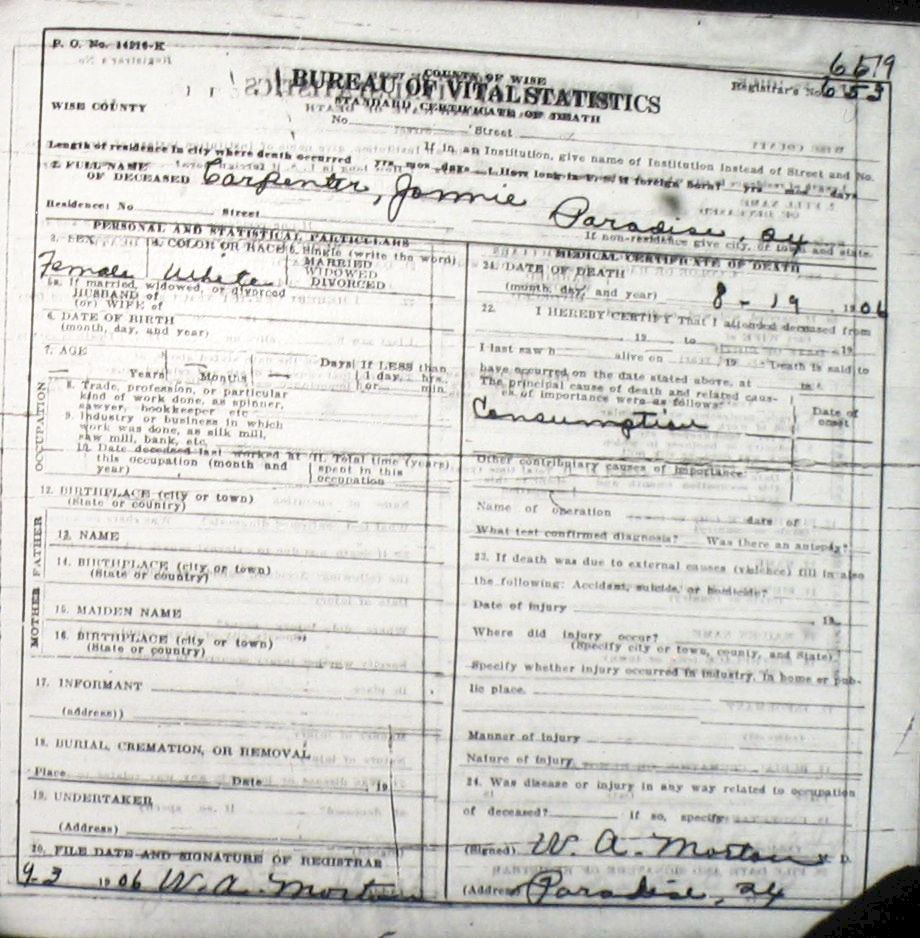 P. O. No. 14916-K
6519
COUNTY OF WISE
Registrar's No. 653
BUREAU OF VITAL STATISTICS
WISE COUNTY
STANDARD CERTIFICATE OF DEATH
No. Street
If in an Institution, give name of Institution instead of Street and No.
Length of residence in city where death occurred yrs. mos. days How long in U. S. if foreign born? yrs mos days
2. FULL NAME OF DECEASED Carpenter, Jannie
Residence: No. Street Paradise,
If non-residence give city, or town and state.
PERSONAL AND STATISTICAL PARTICULARS
3. SEX 4. COLOR OR RACE 5. Single (write the word)
MARRIED
WIDOWED
DIVORCED
Female White
5a. If married, widowed, or divorced
HUSBAND of
(or) WIFE of
6. DATE OF BIRTH
(month, day, and year)
7. AGE
Years Months Days If LESS than
1 day, hrs.
or min.
OCCUPATION
8. Trade, profession, or particular
kind of work done, as spinner,
sawyer, bookkeeper etc
9. Industry or business in which
work was done, as silk mill,
saw mill, bank, etc.
10. Date deceased last worked at
this occupation (month and
year)
11. Total time (years)
spent in this
occupation
12. BIRTHPLACE (city or town)
(State or country)
FATHER
13. NAME
14. BIRTHPLACE (city or town)
(State or country)
MOTHER
15. MAIDEN NAME
16. BIRTHPLACE (city or town)
(State or country)
17. INFORMANT
(address))
18. BURIAL, CREMATION, OR REMOVAL
Place Date 19
19. UNDERTAKER
(Address)
20. FILE DATE AND SIGNATURE OF REGISTRAR
9-3 1906 W. A. Morton
MEDICAL CERTIFICATE OF DEATH
21. DATE OF DEATH
(month, day, and year) 8-19 1906
22. I HEREBY CERTIFY That I attended deceased from
, 19 to , 19
I last saw h alive on , 19 Death is said to
have occurred on the date stated above, at m.
The principal cause of death and related caus-
es of importance were as follows:
Date of
onset
Consumption
Other contributory causes of importance:
Name of operation date of
What test confirmed diagnosis? Was there an autopsy?
23. If death was due to external causes (violence) fill in also
the following: Accident, suicide, or homicide?
Date of injury , 19
Where did injury occur?
(Specify city or town, county, and State)
Specify whether injury occurred in industry, in home or pub-
lic place.
Manner of injury
Nature of injury
24. Was disease or injury in any way related to occupation
of deceased? If so, specify
(Signed) W. A. Morton M. D.
(Address) Paradise,